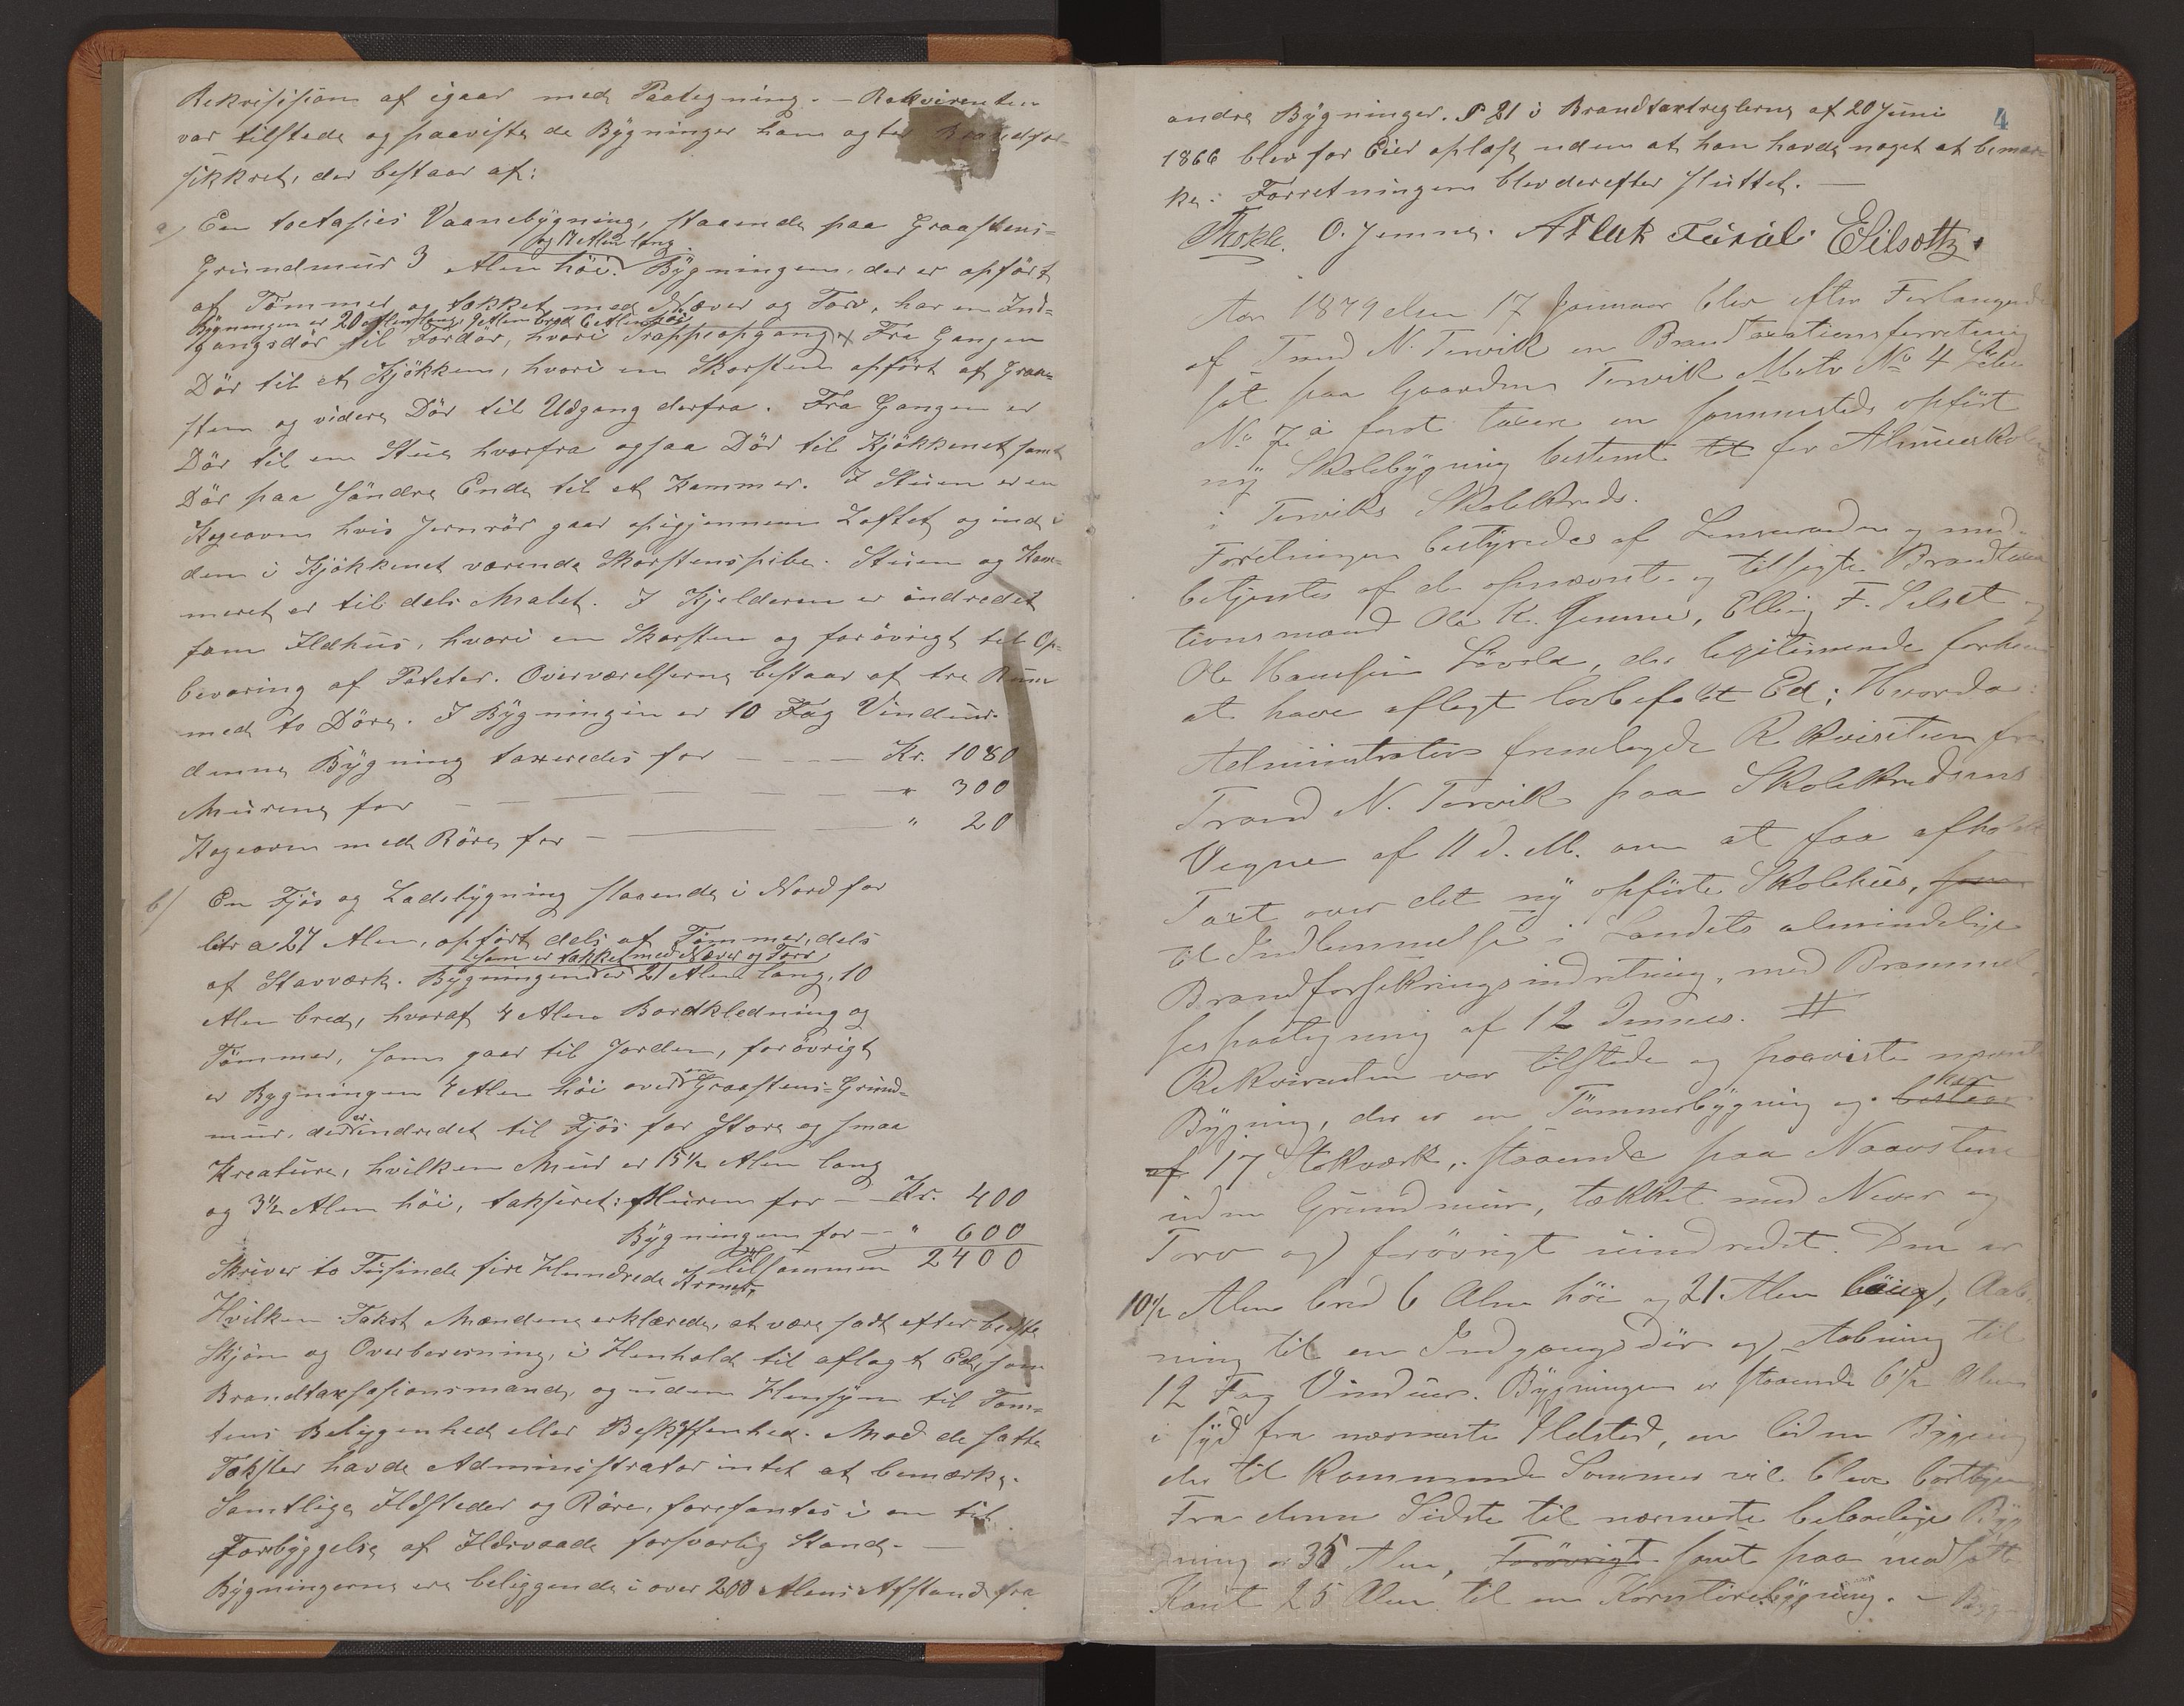 Rekvisision af igaar med Paategning. — Rekvirenten
var tilstede og paaviste de Bygninger han agter Brandfor-
sikkret, der bestaar af:
a) En toetasies Vaanebygning, staaende paa Graastens-
og 17 Alen lang
Grundmur 3 Alen höi. Bygningen, der er opfört
af Tömmer og tækket med Næver og Torv, har en Ind-
Bygningen er 20 Alen lang, 9 Alen bred 6 Alen höi
gangsdör til Fordör, hvori Trappeopgang × Fra Gangen
Dör til et Kjökken, hvori en Skorsten opfört af Graa-
sten og videre Dör til Udgang derfra. Fra Gangen er
Dör til en Stue hvorfra ogsaa Dör til Kjökkenet samt
Dör paa Söndre Ende til et Kammer. I Stuen er en
Kogeovn hvis Jernrör gaar opigjennem Loftet og ind i
den i Kjökkenet værende Skorstenspibe. Stuen og Kam-
meret er til dels Malet. I Kjelderen er indredet
som Ildhus, hvori en Skorsten og forövrigt til Op-
bevaring af Poteter. Overværelserne bestaar af tre Rum
med to Döre. I Bygningen er 10 Fag Vinduer.
denne Bygning taxeredes for — — — Kr. 1080
Murene for — — — — — " 300
Kogeovn med Röre for — — — " 20
b) En Fjös og Ladebygning staaende i Nord for
litr a 27 Alen, opfört dels af Tömmer, dels
som er tækket med Næver og Torv
af Stavværk. Bygningen er 21 Alen lang, 10
Alen bred, hvoraf 4 Alen Bordklædning og
Tömmer, som gaar til Jorden, forövrigt
en
er Bygningen 4 Alen höi over Graastens-Grund-
er
mur, der indredet til Fjös for Store og smaa
Kreature, hvilken Mur er 15½ Alen lang
og 3½ Alen höi, takseret: Muren for — Kr. 400
Bygningen for — " 600
Tilsammen 2400
Skriver to Tusinde fire Hundrede Kroner,
Hvilken Takst Mændene erklærede, at være sadt efter bedste
Skjön og Overbevisning, i Henhold til aflagt Ed, som
Brandtaksasionsmænd, og uden Hensyn til Tom-
tens Beliggenhed eller Beskaffenhed. Mod de satte
Takster havde Administrator intet at bemærke.
Samtlige Ildsteder og Röre, forefantes i en til
Forbyggelse af Ildsvaade forsvarlig Stand. —
Bygningerne ere beliggende i over 200 Alens Afstand fra
4
andre Bygninger. § 21 i Brandtaxtreglerne af 20 Juni
1866 blev for Eier oplæst uden at han havde noget at bemær-
ke. Forretningen blev derefter sluttet. —
O. Jemne. Aslak
Aar 1879 den 17 Januar blev efter Forlangende
af Trond N. Torvik en Brandtaxationsforretning
sat paa Gaarden Torvik Matr No 4 Löbe
No 7 a forat taxere en sammesteds opfört
ny Skolebygning bestemt for Almueskolen
i Torviks Skolekreds.
Foretningen bestyredes af Lensmanden og med-
betjentes af de opnævnte og tilsigte Brandtaxa
tionsmænd Ole K. Jemne, Elling F. Silset og
Ole Hansen Lövold, der legitimerede
at have aflagt lovbefalet Ed; Hvorda:
Administrator fremlagde Rekvisition fra
Trond N. Torvik paa Skolekredsens
Vegne af 11 d. M. om at faa afholdt
Taxt over det ny opförte Skolehus, som
til Indlemmelse i Landets almindelige
Brandforsikringsindretning, med Brammel-
sespaategning af 12 ds. #
Rekvirenten var tilstede og paaviste nævnte
har
Bygning, der er en Tömmerbygning og bestaar
af 17 Stokværk, staaende paa Naavstene
uden Grundmur, tækket med Never og
Torv og forövrigt uindredet. Den er
10½ Alen bred 6 Alen höi og 21 Alen lang, Aab-
ning til en Indgangsdör og Aabning til
12 Fag Vinduer. Bygningen er staaende 6½ Alen
i Syd fra nærmeste Ildsted, en liden Bygning
der til kommende Sommer vil blive
Fra denne Sidste til nærmeste beboelige Byg
ning er 35 Alen, Forövrigt samt paa modsatte
Kant 25 Alen til en Korntörebygning. —